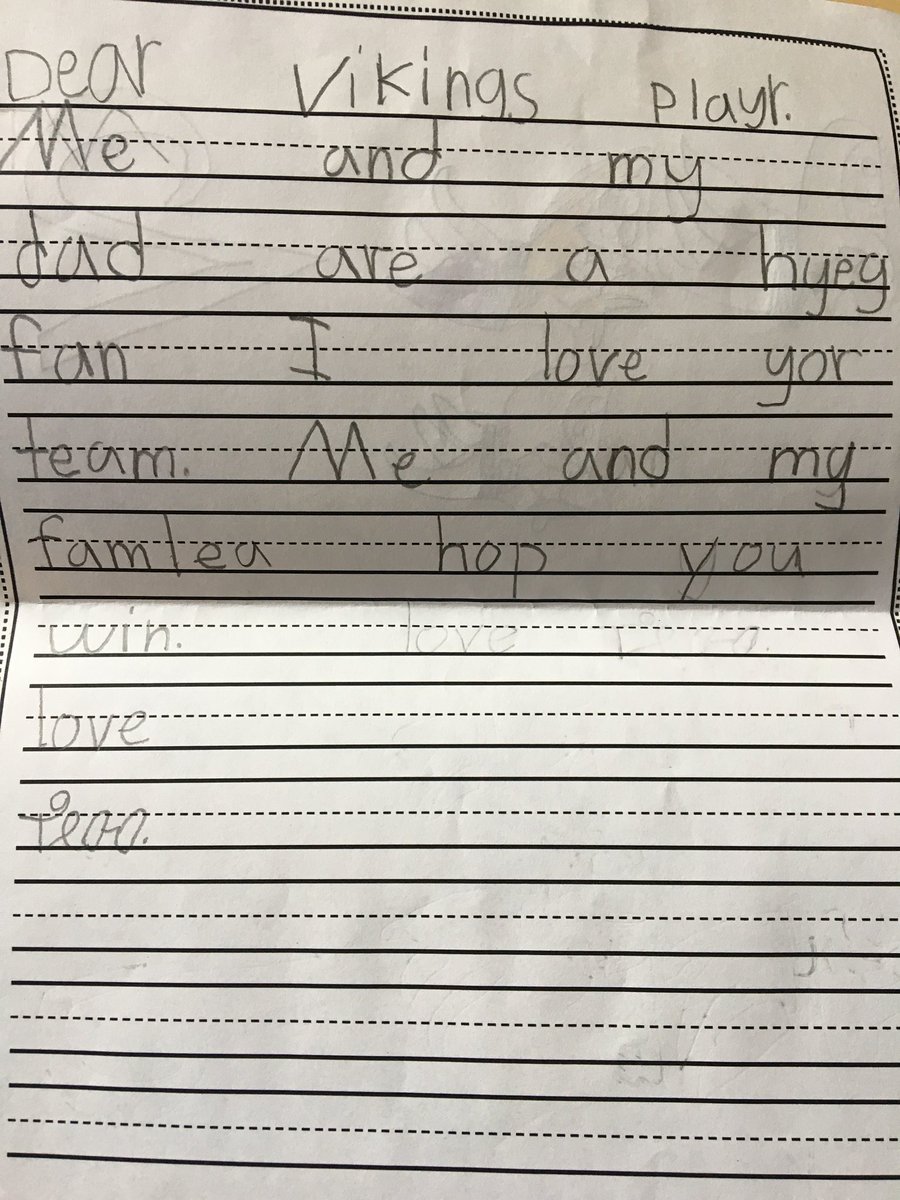 Dear Vikings Playr.
Me and my
dad are a hyeg
fan I love yor
team. Me and my
famlea hop you
win. love
love